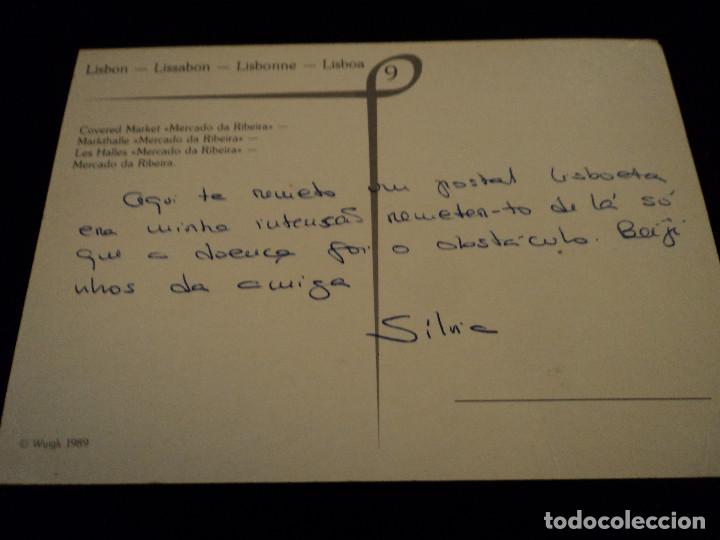 Lisbon — Lissabon — Lisbonne — Lisboa
9
Covered Market «Mercado da Ribeira» —
Markthalle «Mercado da Ribeira» —
Les Halles «Mercado da Ribeira» —
Mercado da Ribeira.
Aqui te remeto um postal lisboeta
era minha intensão remeter-to de lá só
que a doença foi o obstáculo. Beiji
nhos da amiga
Silvia
© Wuigk 1989
todocoleccion